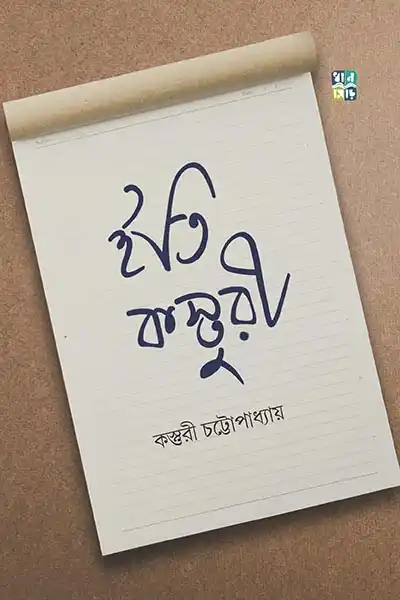 ইতি
কস্তুরী
কস্তুরী চট্টোপাধ্যায়